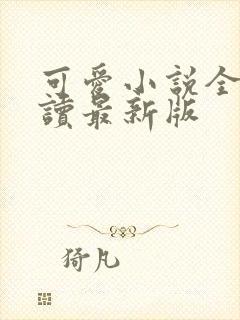 可愛小說全
讀最新版
猗凡